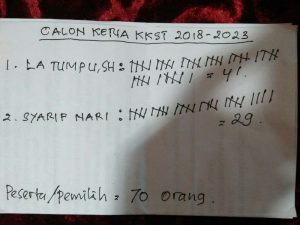 CALON KERJA KKST 2018-2023
1. LA TUMPU, SH :
= 41.
2. SYARIF HARI :
= 29.
Peserta/pemilih = 70 orang.